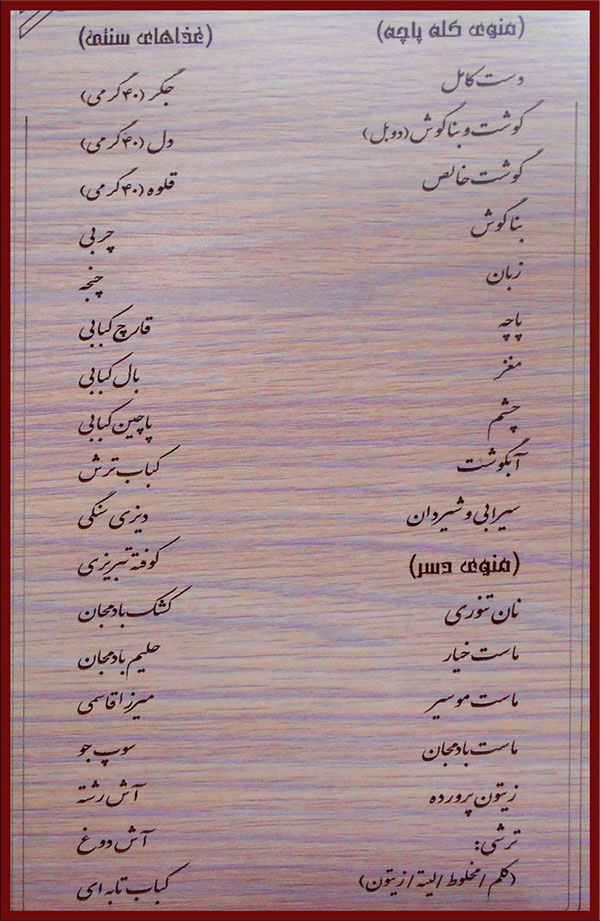 (منوی کله پاچه)
دست کامل
گوشت و بناگوش (دوبل)
گوشت خالص
بناگوش
زبان
پاچه
مغز
چشم
آبگوشت
سیرابی و شیردان
(منوی دسر)
نان تنوری
ماست خیار
ماست موسیر
ماست بادمجان
زیتون پرورده
ترشی:
(کلم / مخلوط / لیته / زیتون)
(غذاهای سنتی)
جگر (۴۰ گرمی)
دل (۴۰ گرمی)
قلوه (۴۰ گرمی)
چربی
چنجه
قارچ کبابی
بال کبابی
پاچین کبابی
کباب ترش
دیزی سنگی
کوفته تبریزی
کشک بادمجان
حلیم بادمجان
میرزا قاسمی
سوپ جو
آش رشته
آش دوغ
کباب تابه ای